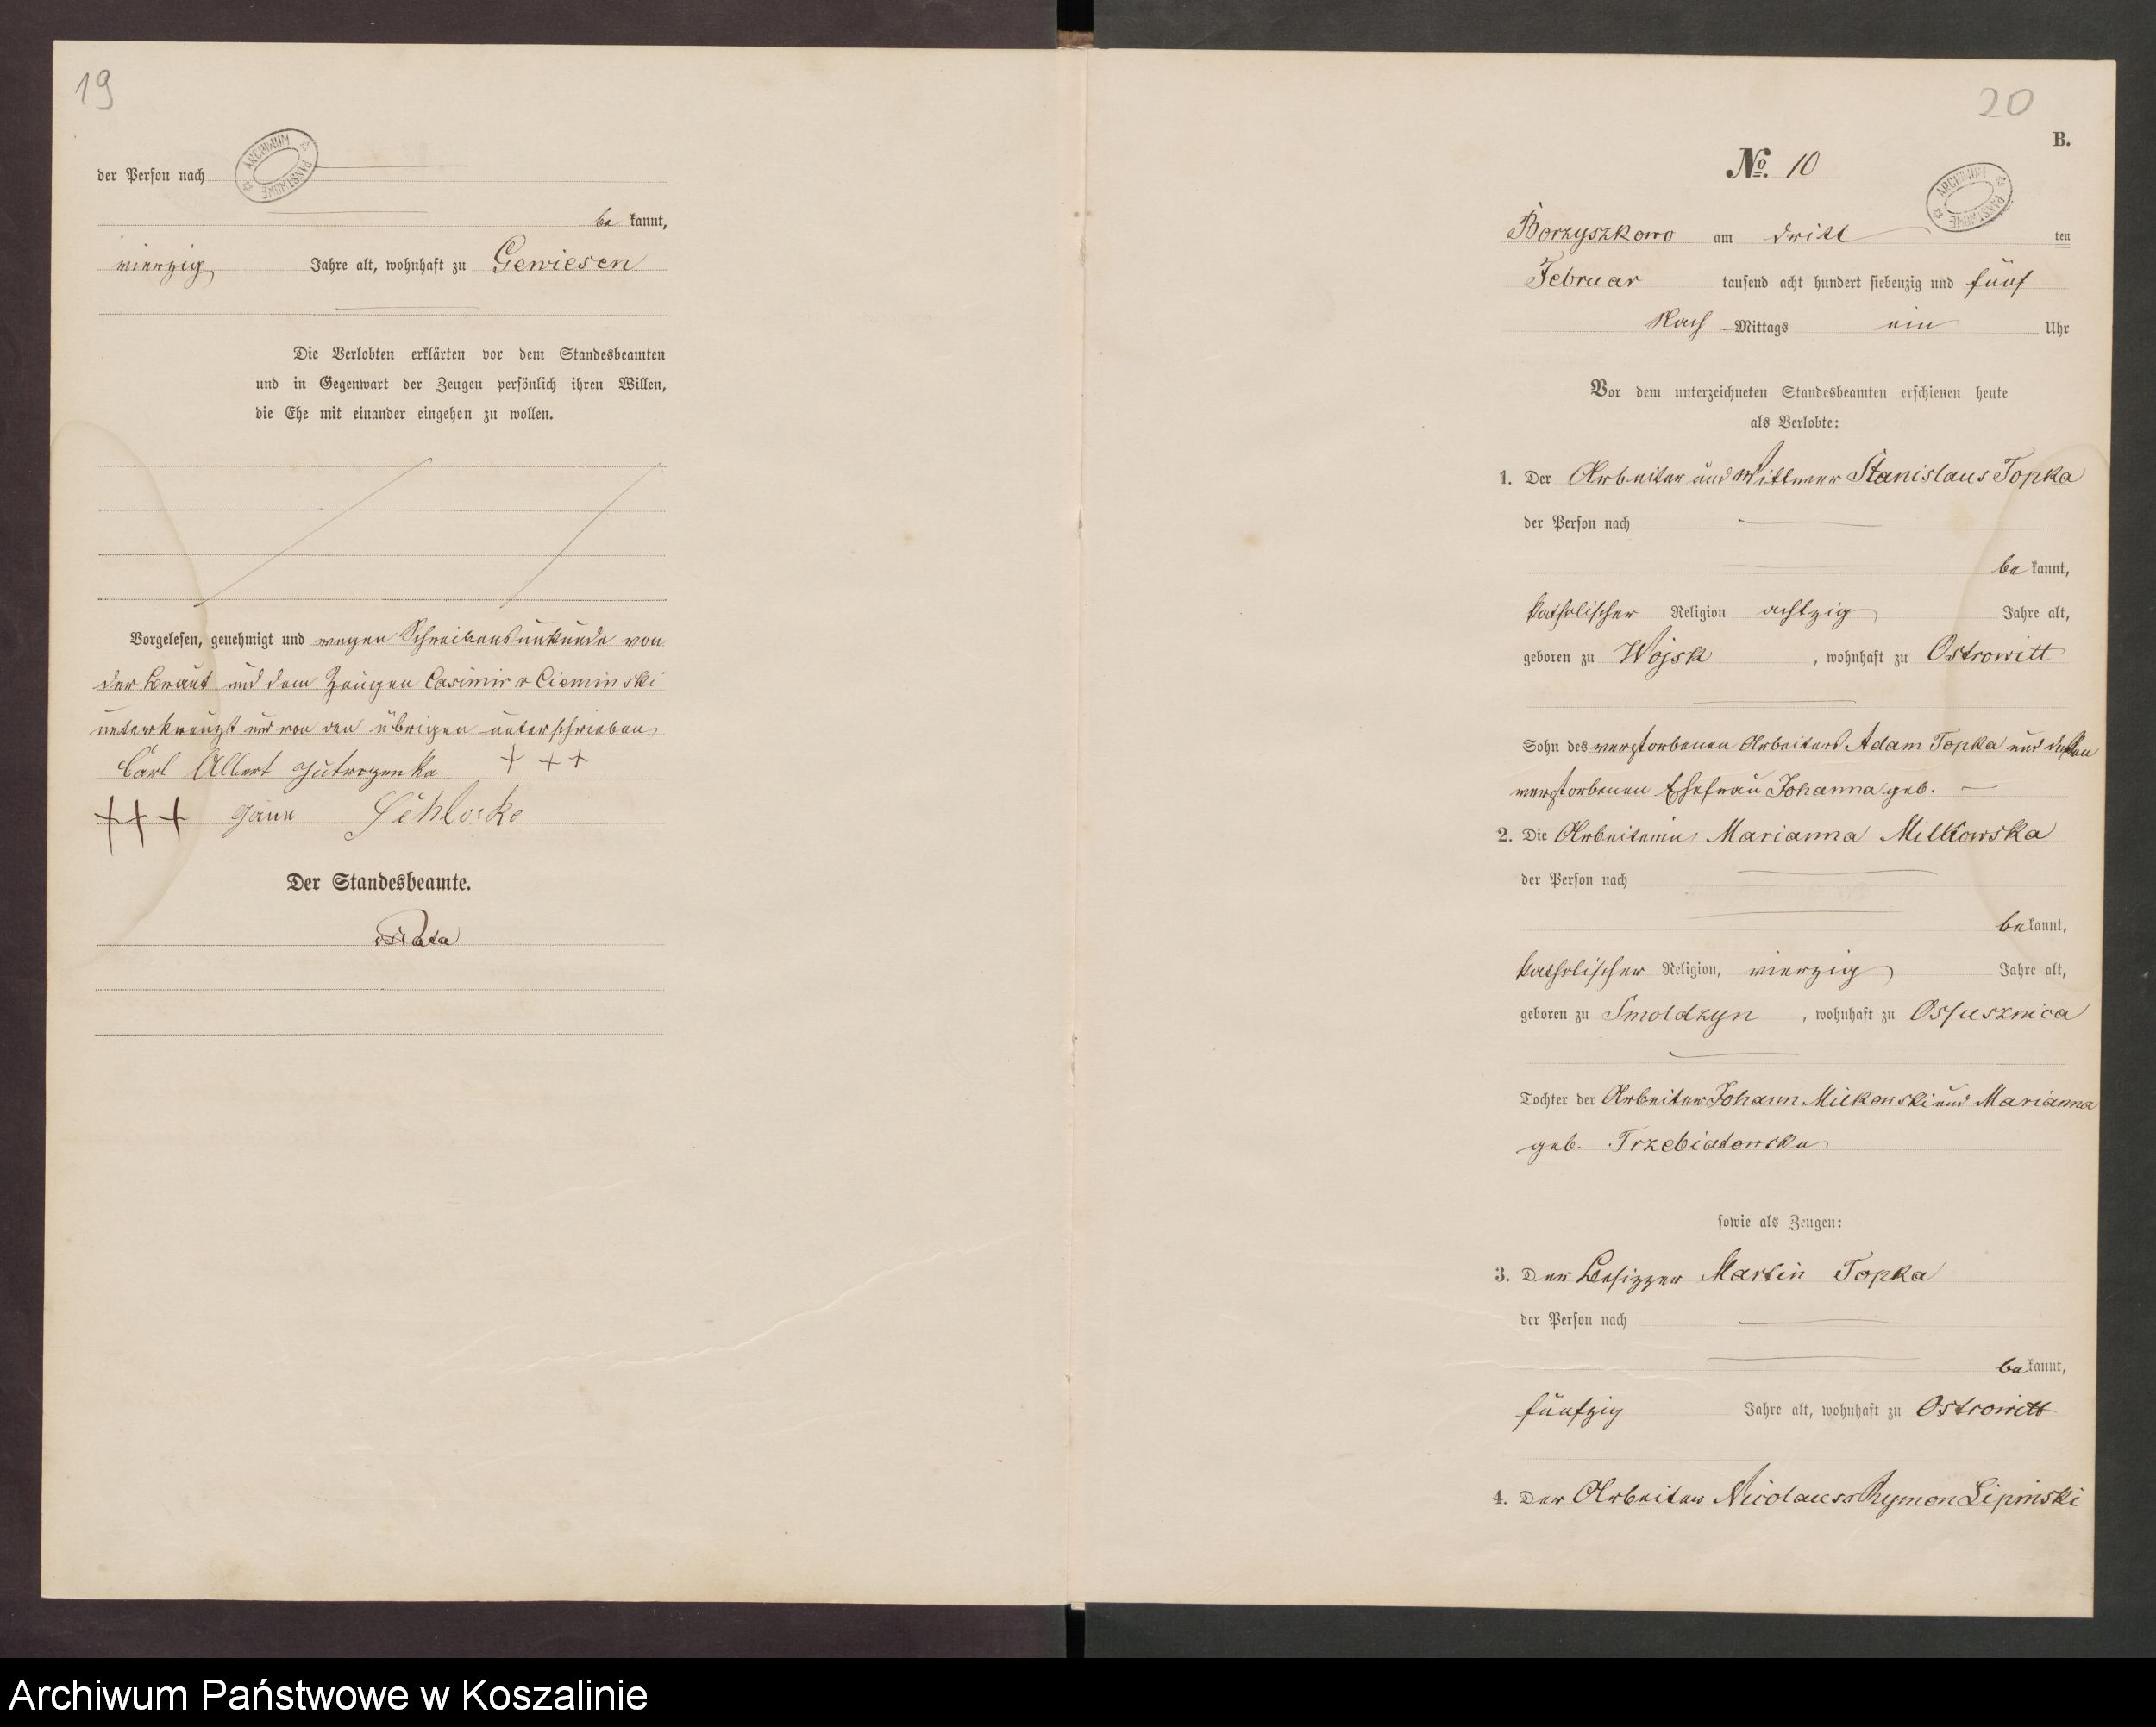 19
ARCHIWUM PAŃSTWOWE
der Person nach
be kannt,
vierzig Jahre alt, wohnhaft zu Gewiesen
Die Verlobten erklärten vor dem Standesbeamten
und in Gegenwart der Zeugen persönlich ihren Willen,
die Ehe mit einander eingehen zu wollen.
Vorgelesen, genehmigt und wegen Schreibensunkunde von
der Braut und dem Zeugen Casimir v Cieminski
unterkreuzt und von den übrigen unterschrieben
Carl Albert +++
+++
Der Standesbeamte.
20
B.
No. 10
ARCHIWUM PAŃSTWOWE
Borzyszkowo am dritt ten
Februar tausend acht hundert siebenzig und fünf
Nach -Mittags ein Uhr
Vor dem unterzeichneten Standesbeamten erschienen heute
als Verlobte:
1. Der Arbeiter und Wittwer Stanislaus Topka
der Person nach
be kannt,
katholischer Religion achtzig Jahre alt,
geboren zu Wojsk, wohnhaft zu Ostrowitt
Sohn des verstorbenen Arbeiters Adam Topka und dessen
verstorbenen Ehefrau Johanna geb. —
2. Die Arbeiterin Marianna Milkowska
der Person nach
bekannt,
katholischer Religion, vierzig Jahre alt,
geboren zu Smoldzyn, wohnhaft zu Ossusznica
Tochter der Arbeiter Johann Milkowski und Marianna
geb. Trzebiatowska
sowie als Zeugen:
3. Der Besizzer Martin Topka
der Person nach
bekannt,
fünfzig Jahre alt, wohnhaft zu Ostrowitt
4. Der Arbeiter Nicolaus v Rymon Lipinski
Archiwum Państwowe w Koszalinie